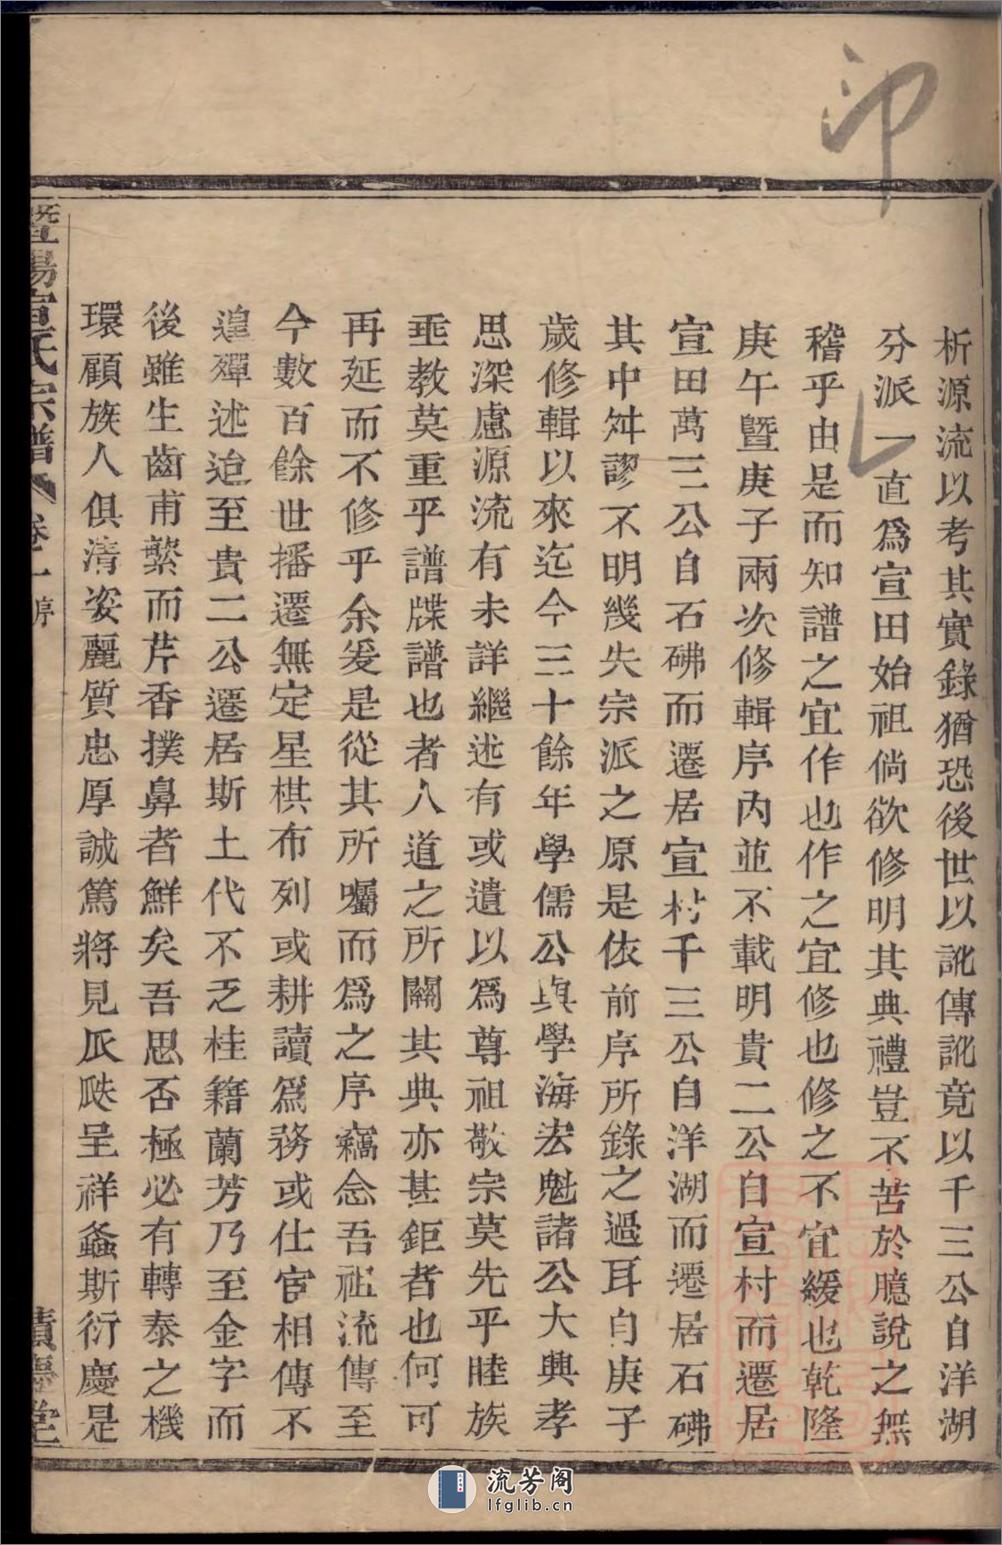 印
析源流以考其實錄猶恐後世以訛傳訛竟以千三公自洋湖
分派一直爲宣田始祖倘欲修明其典禮豈不苦於臆說之無
稽乎由是而知譜之宜作也作之宜修也修之不宜緩也乾隆
庚午曁庚子兩次修輯序內並不載明貴二公自宣村而遷居
宣田萬三公自石硑而遷居宣村千三公自洋湖而遷居石硑
其中舛謬不明幾失宗派之原是依前序所錄之過耳自庚子
歲修輯以來迄今三十餘年學儒公與學海宏魁諸公大興孝
思深慮源流有未詳繼述有或遺以爲尊祖敬宗莫先乎睦族
垂教莫重乎譜牒譜也者人道之所關其典亦甚鉅者也何可
再延而不修乎余爰是從其所囑而爲之序竊念吾祖流傳至
今數百餘世播遷無定星棋布列或耕讀爲務或仕宦相傳不
遑殫述迨至貴二公遷居斯土代不乏桂籍蘭芳乃至金字而
後雖生齒甫蘩而芹香撲鼻者鮮矣吾思否極必有轉泰之機
環顧族人俱清姿麗質忠厚誠篤將見瓜瓞呈祥螽斯衍慶是
暨陽宣氏宗譜 卷一 序 積慶堂
流芳阁
lfglib.cn